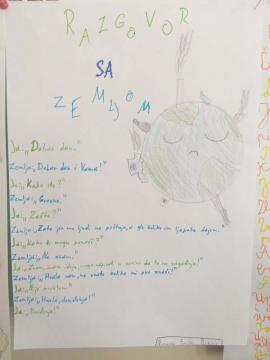 RAZGOVOR
SA
ZEMLJOM
Ja: „Dobar dan."
Zemlja: „Dobar dan i Vama!"
Ja: „Kako ste?"
Zemlja: „Grozno."
Ja: „Zašto?"
Zemlja: „Zato jer me ljudi ne poštuju, a ja toliko im ljepote dajem."
Ja: „Kako ti mogu pomoći?"
Zemlja: „Ne znam."
Ja: „Znam, imam ideju, mogu
Zemlja: „Hvala vam, ne znate koliko mi ovo znači!"
Ja: „Nije problem."
Zemlja: „Hvala, doviđenja!"
Ja: „Doviđenja!"